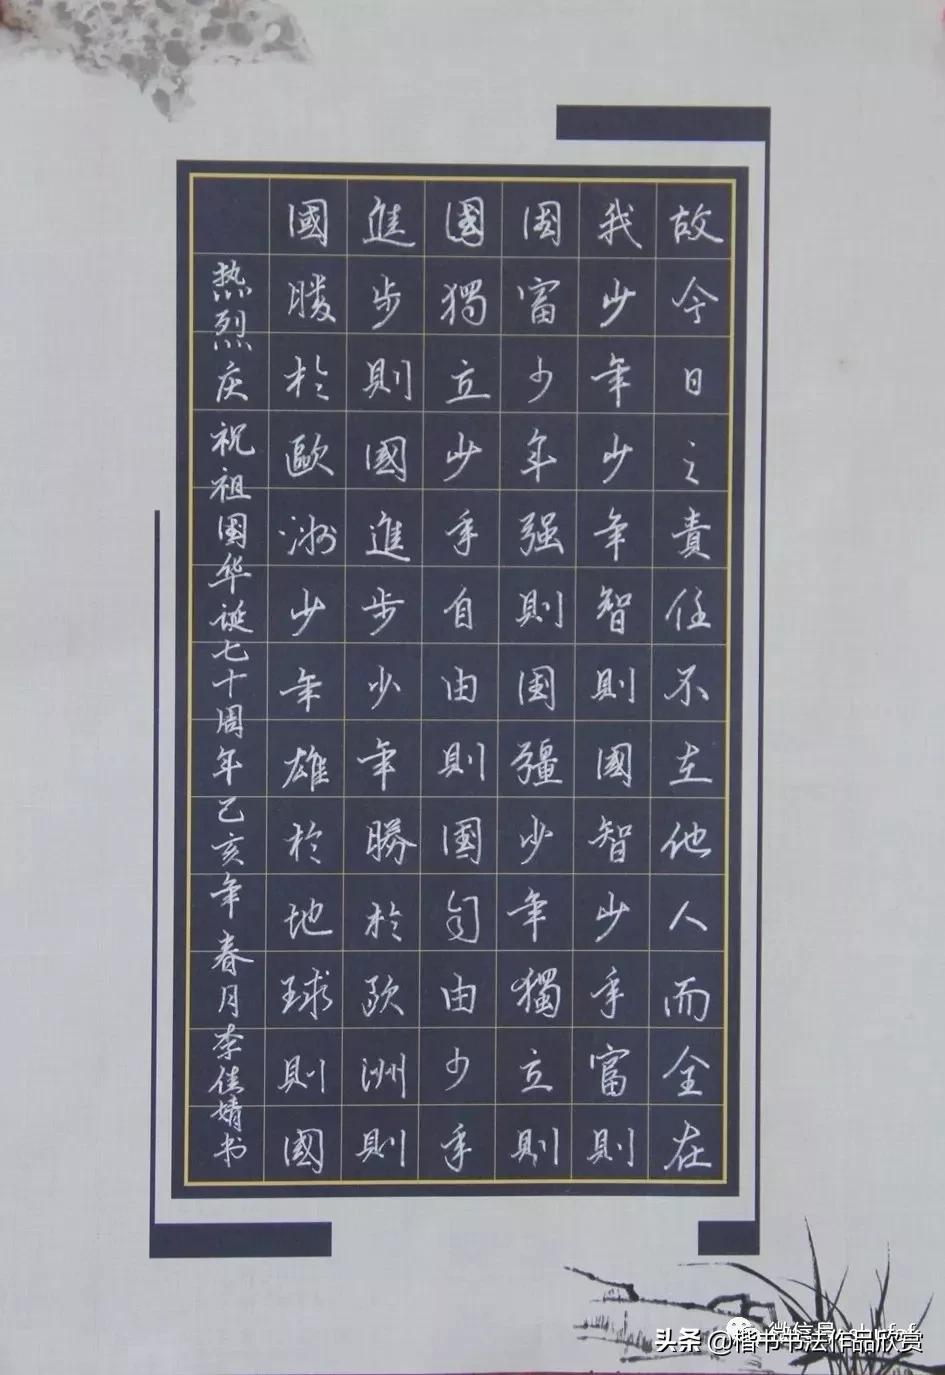 故今日之責任不在他人而全在
我少年少年智則國智少年富則
国富少年强則国彊少年獨立則
國獨立少年自由則国自由少年
進步則國進步少年勝於欧洲則
國勝於歐洲少年雄於地球則國
热烈庆祝祖国华诞七十周年己亥年春月李佳婧书
微信号
头条 @楷书书法作品欣赏